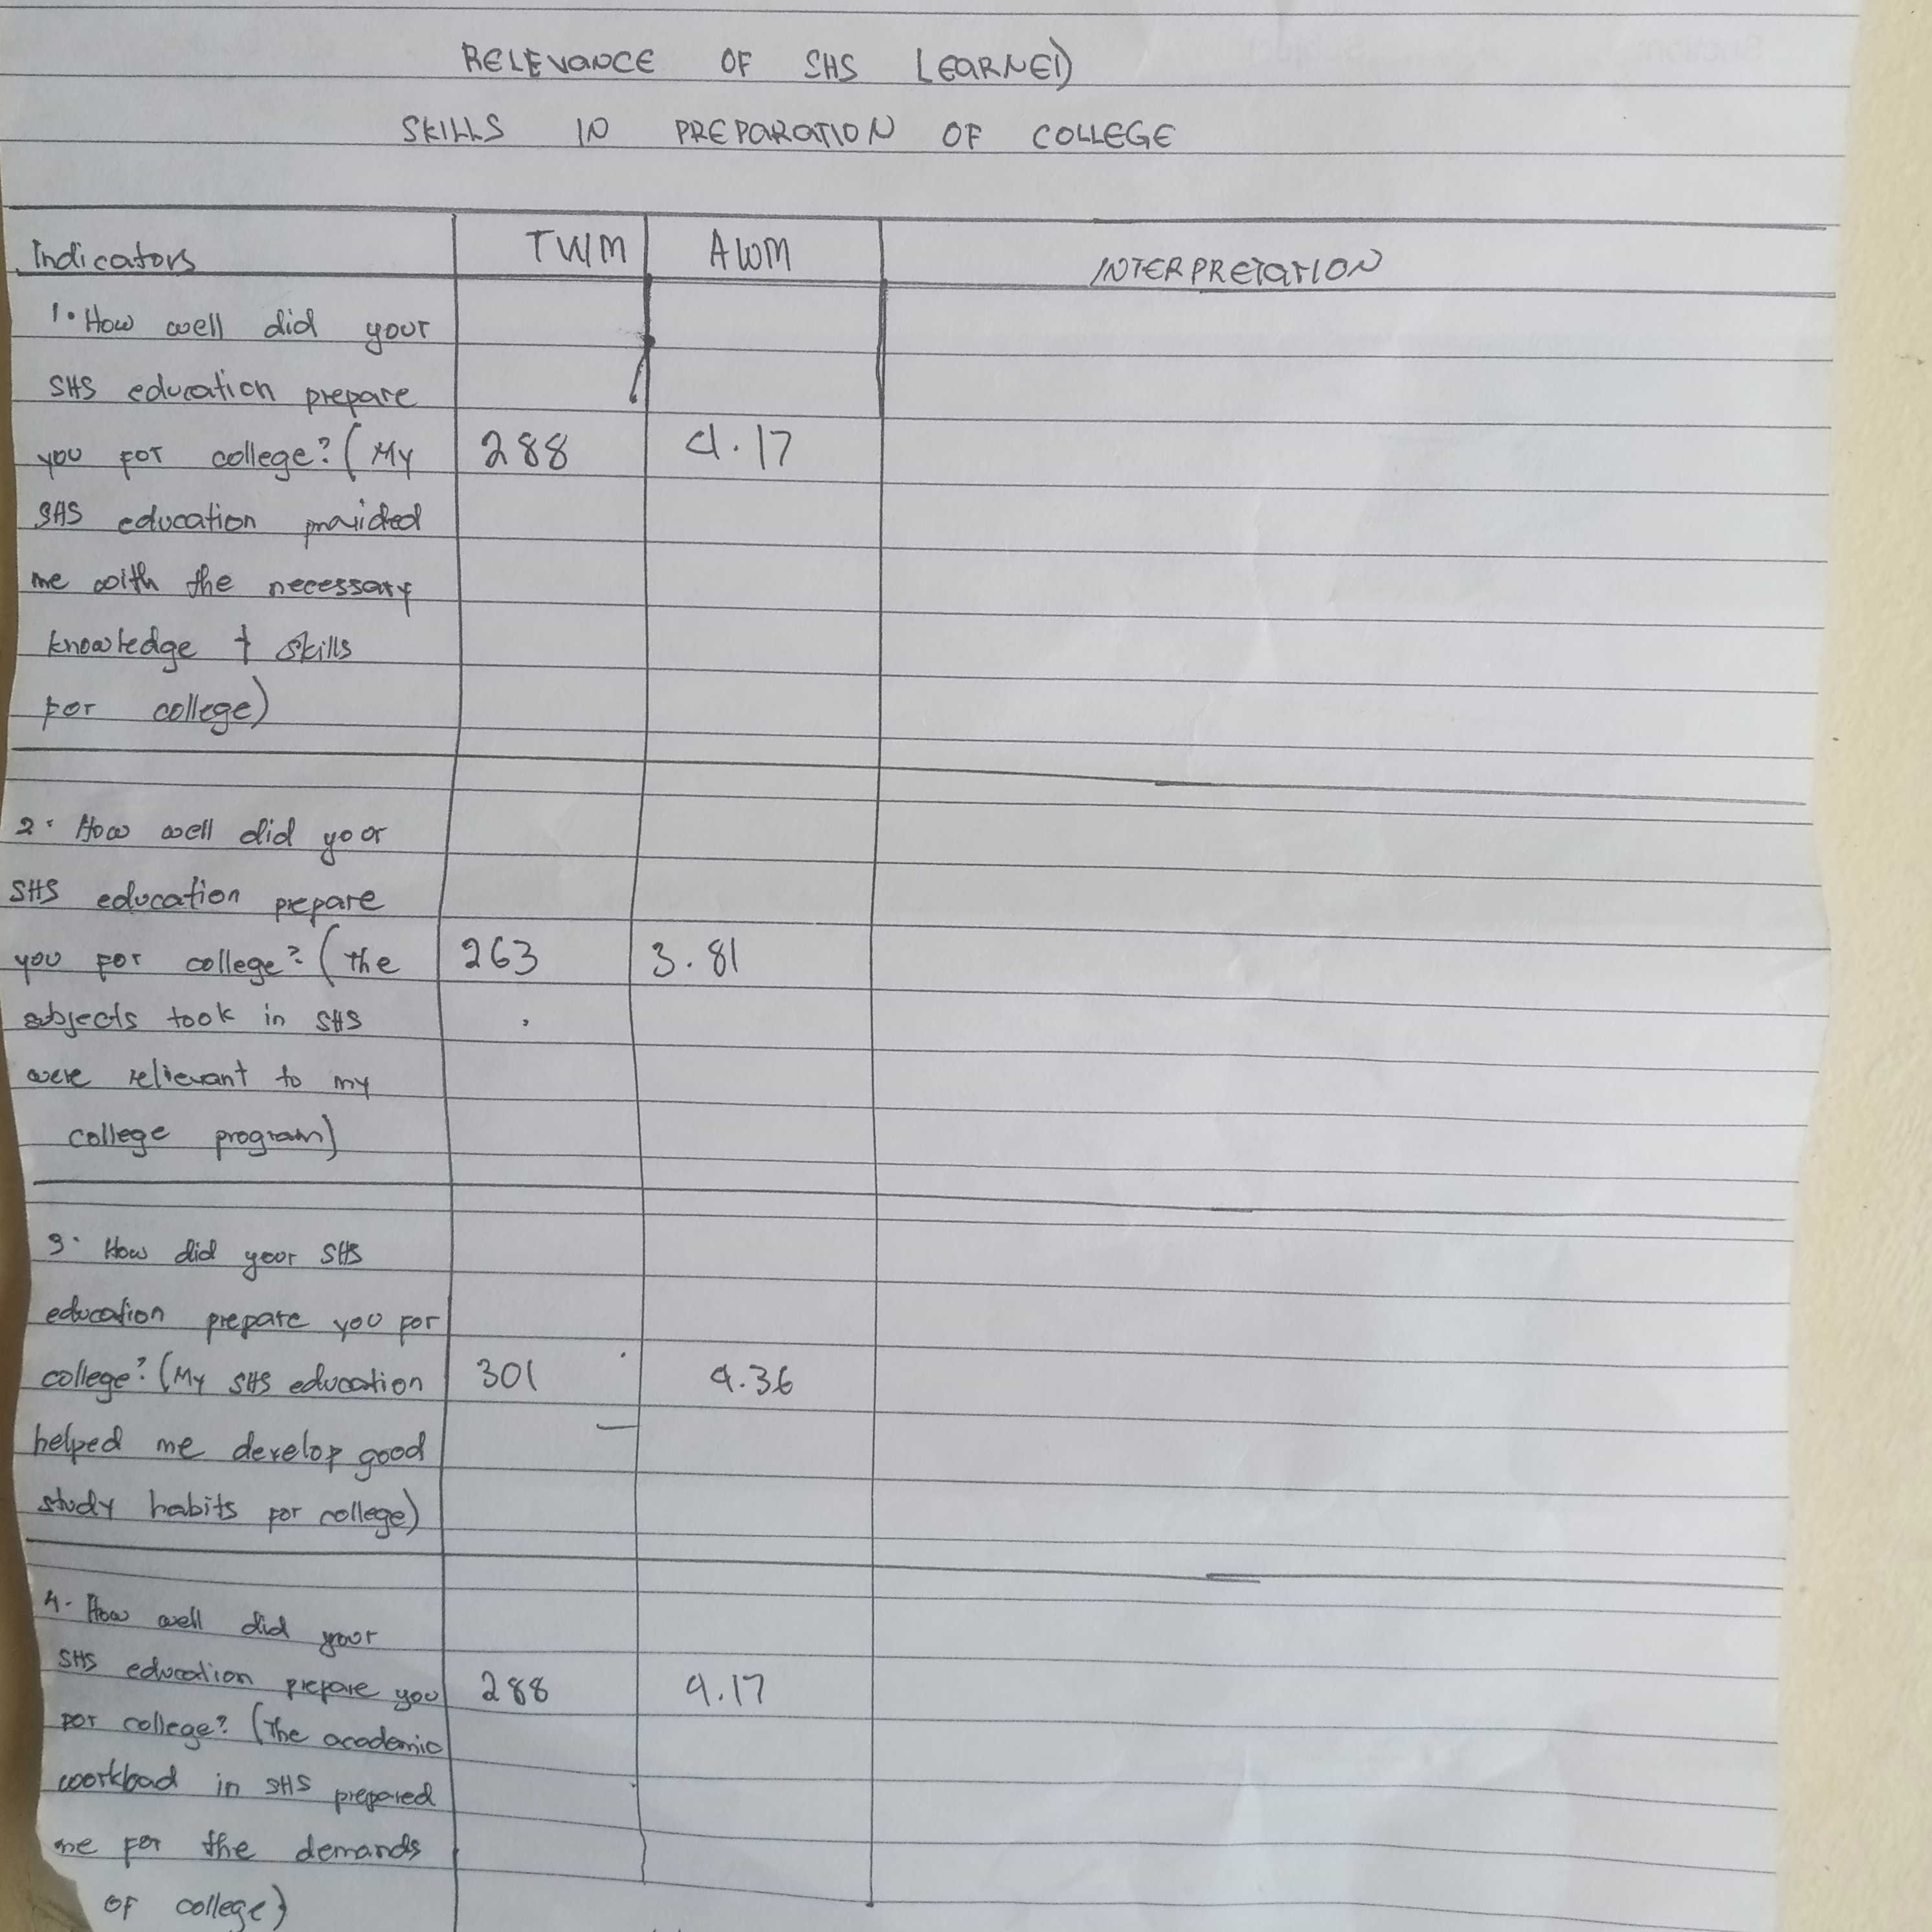 RELEVANCE OF SHS LEARNED
SKILLS IN PREPARATION OF COLLEGE
Indicators TWM AWM INTERPRETATION
1. How well did your
SHS education prepare
you for college? (My 288 4.17
SHS education provided
me with the necessary
knowledge & skills
for college)
2. How well did your
SHS education prepare
you for college? (the 263 3.81
subjects took in SHS
were relievant to my
college program)
3. How did your SHS
education prepare you for
college? (My SHS education 301 4.36
helped me develop good
study habits for college)
4. How well did your
SHS education prepare you 288 4.17
for college? (The academic
workload in SHS prepared
me for the demands
of college)